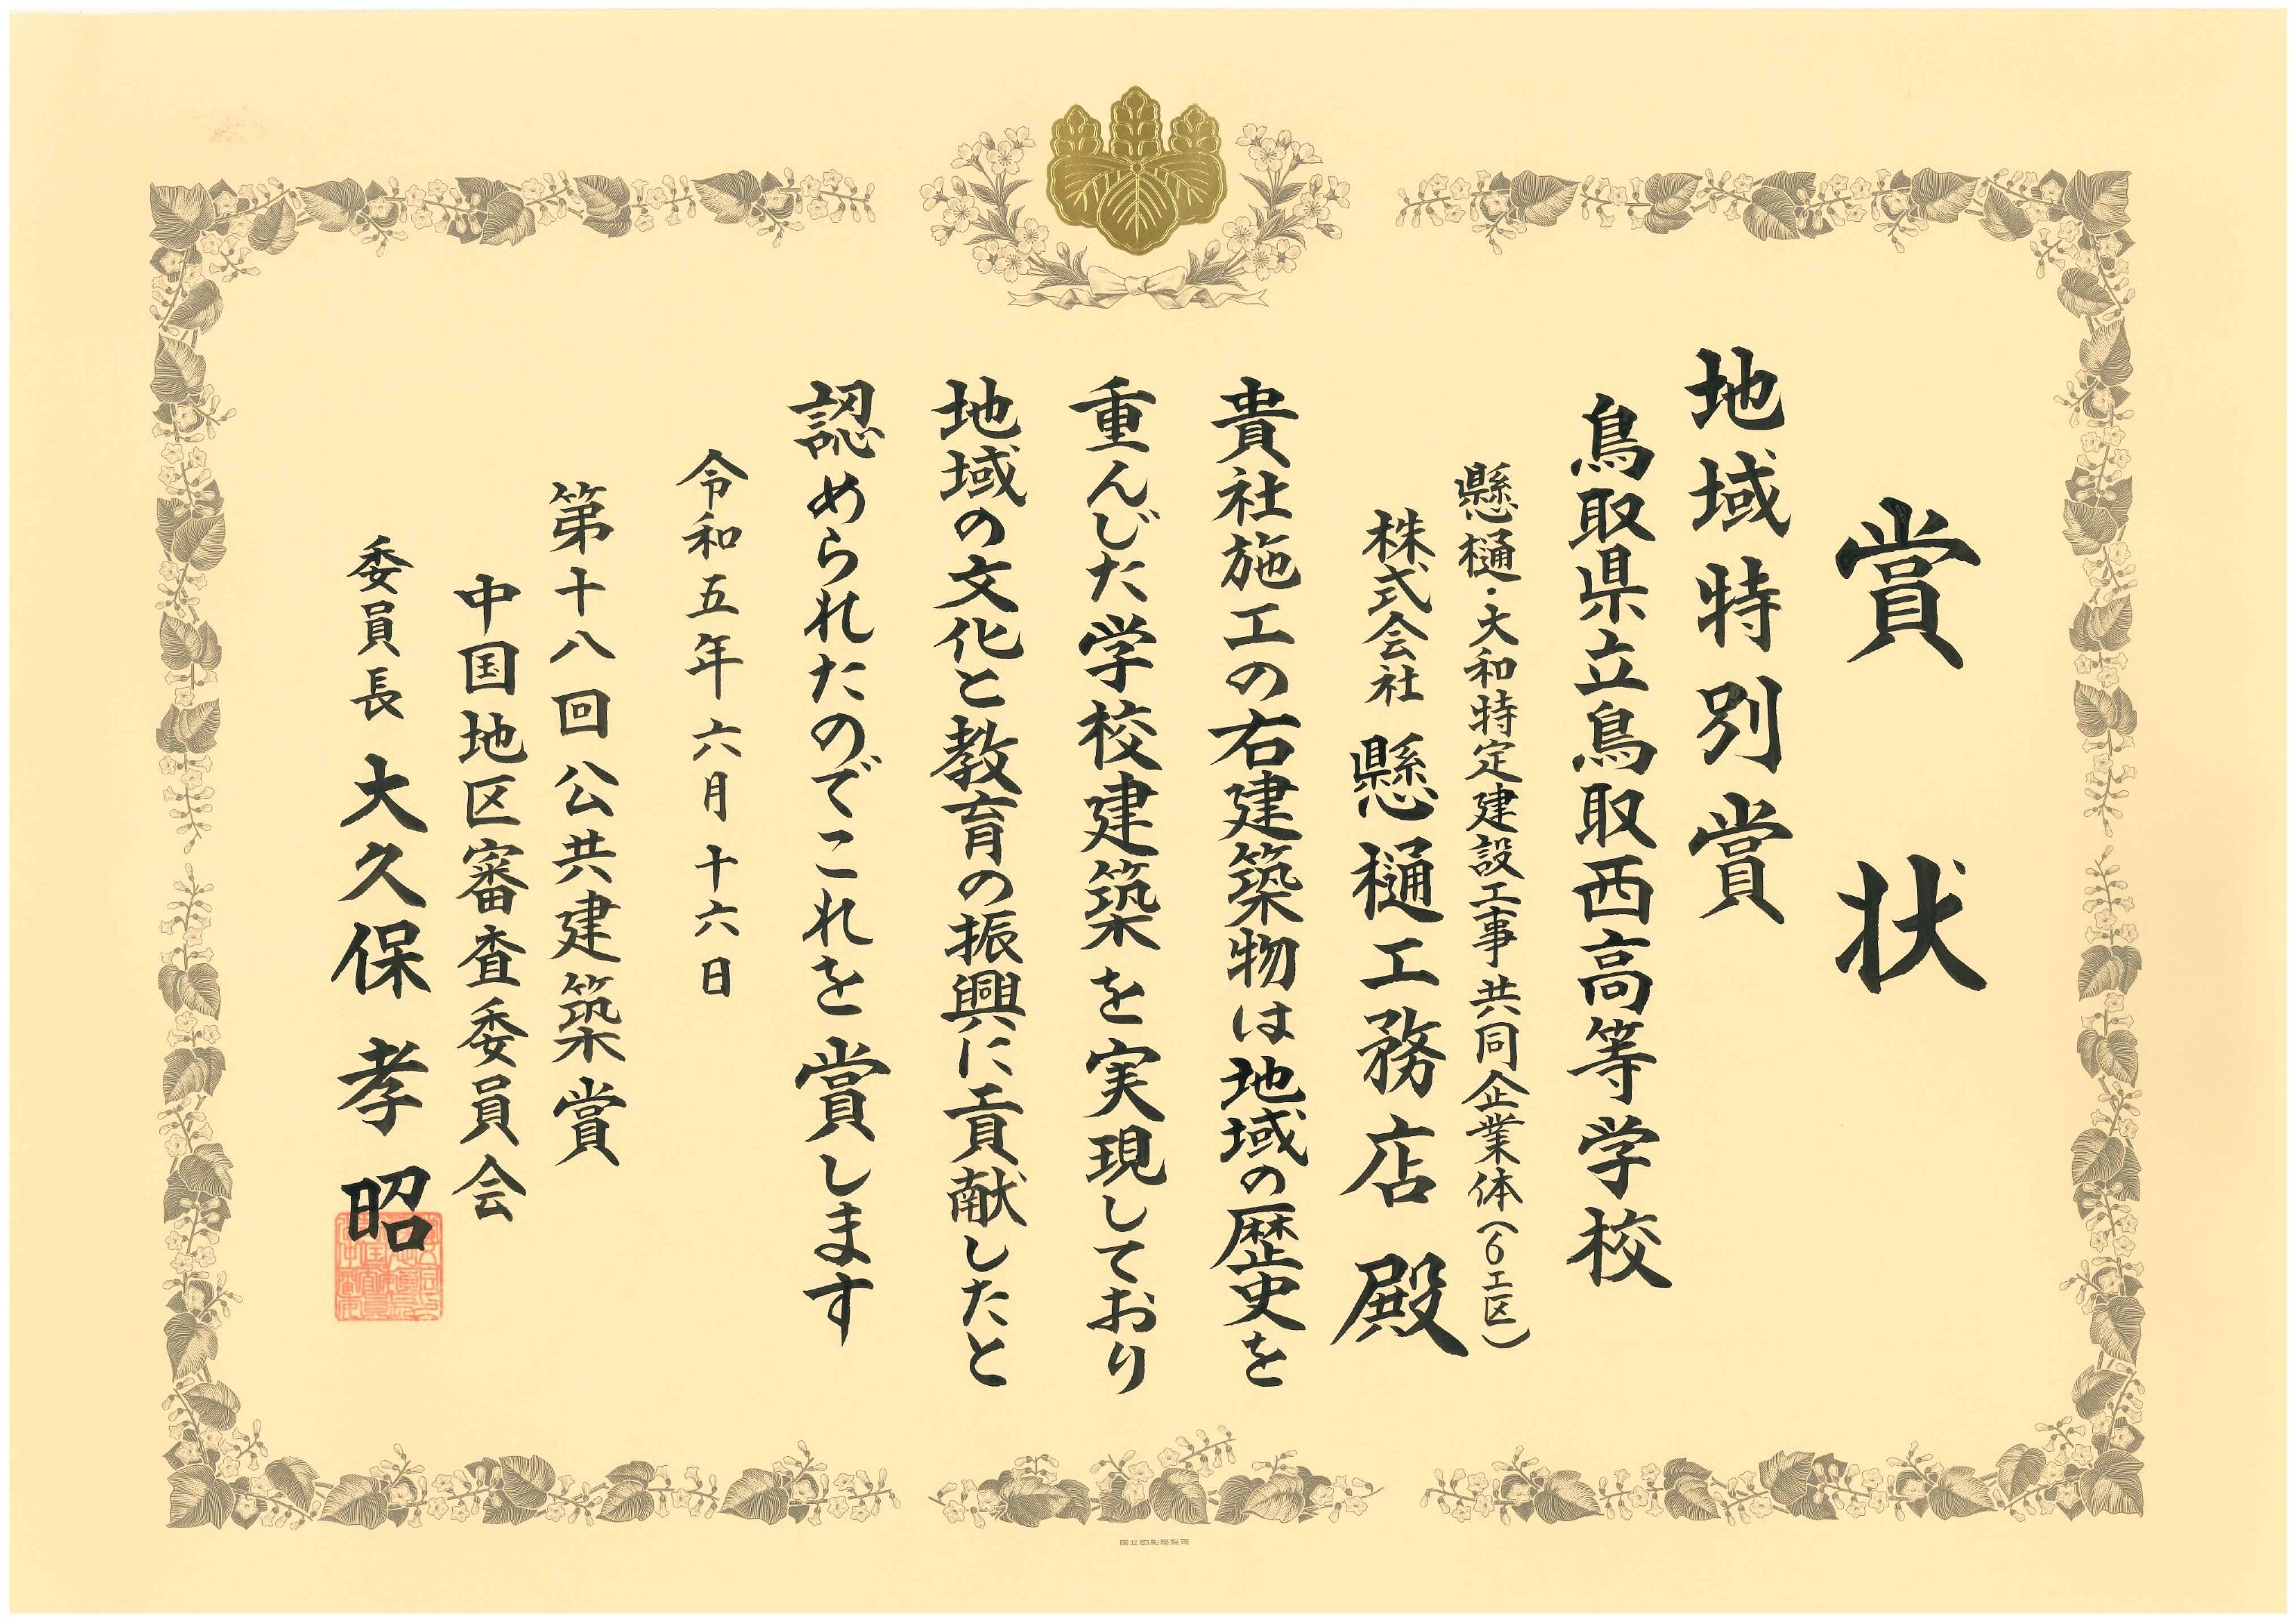 賞状
地域特別賞
鳥取県立鳥取西高等学校
懸樋・大和特定建設工事共同企業体(6工区)
株式会社 懸樋工務店 殿
貴社施工の右建築物は地域の歴史を
重んじた学校建築を実現しており
地域の文化と教育の振興に貢献したと
認められたのでこれを賞します
令和五年六月十六日
第十八回公共建築賞
中国地区審査委員会
委員長 大久保孝昭
国立印刷局製造